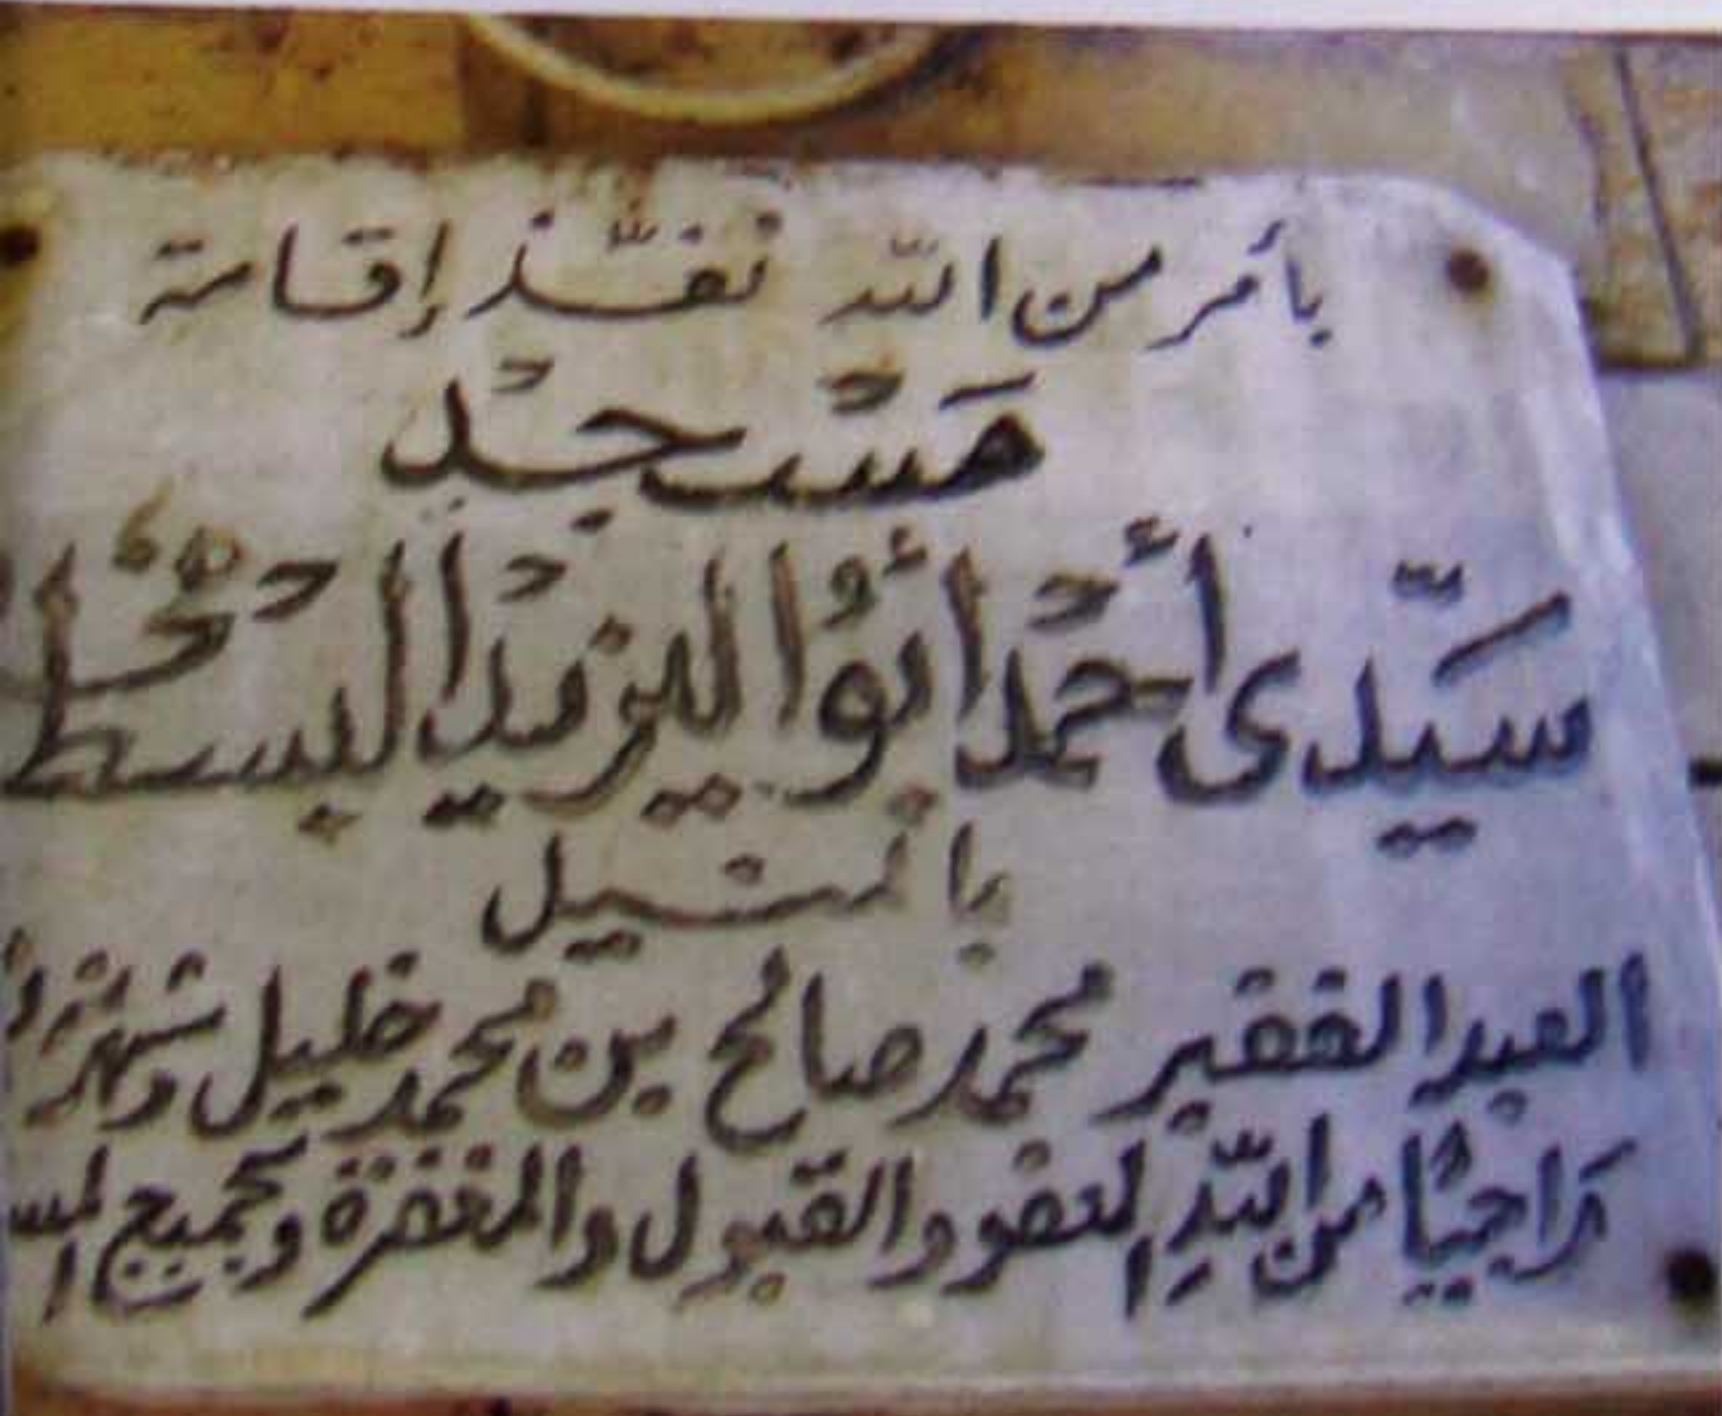 بأمر من الله نفّذ إقامة
مَسْجِدْ
سَيّدى أحْمَدْ ابُوُا اليزيدْ البسط
بالمنشيل
العبد الفقير محمد صالح بن محمد خليل وشهرته
رَاجيًا من اللهِ العفو والقبول والمغفرة ولجميع